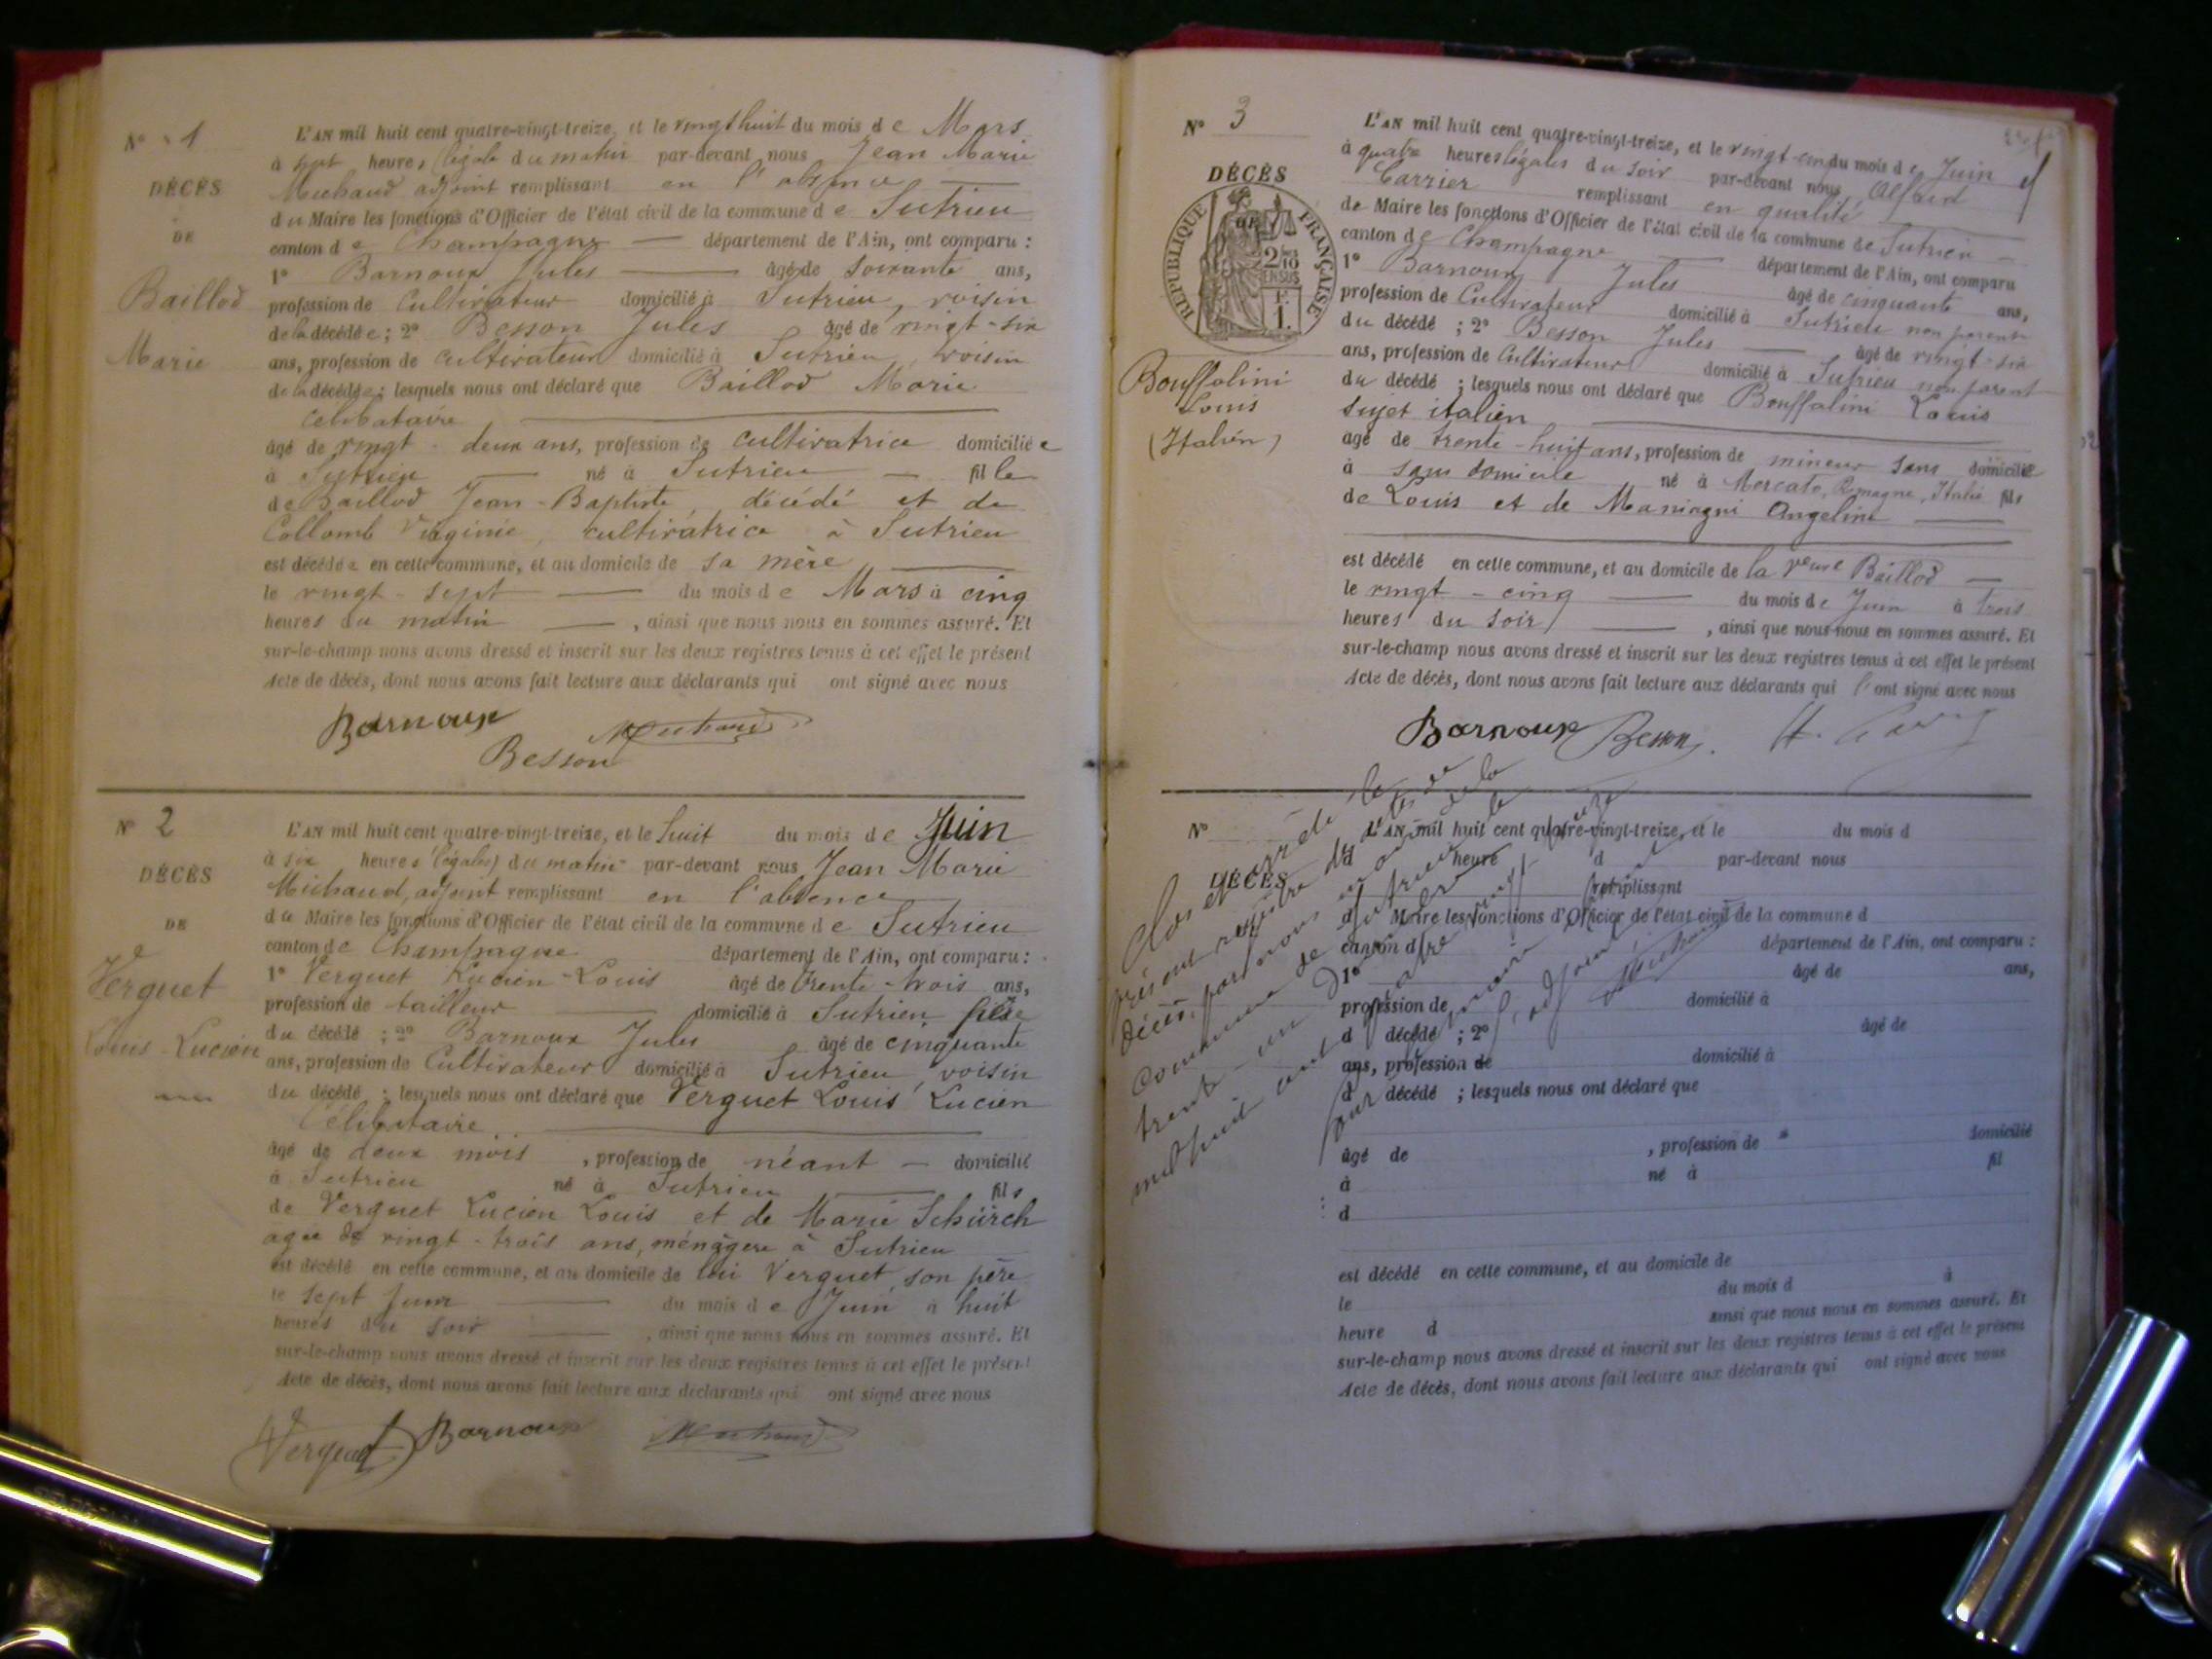 N° 1
DÉCÈS
DE
Baillod
Marie
L'AN mil huit cent quatre-vingt-treize, et le vingt huit du mois de Mars
à sept heures légale du matin par-devant nous Jean Marie
Michaud adjoint remplissant en l'absence
du Maire les fonctions d'Officier de l'état civil de la commune de Sutrieu
canton de Champagne département de l'Ain, ont comparu :
1° Barnoux Jules âgé de soixante ans,
profession de Cultivateur domicilié à Sutrieu, voisin
de la décédée ; 2° Besson Jules âgé de vingt-six
ans, profession de cultivateur domicilié à Sutrieu, voisin
de la décédée ; lesquels nous ont déclaré que Baillod Marie
Célibataire
âgé de vingt-deux ans, profession de cultivatrice domiciliée
à Sutrieu né à Sutrieu fille
de Baillod Jean-Baptiste, décédé et de
Collomb Virginie, cultivatrice à Sutrieu
est décédée en cette commune, et au domicile de sa mère
le vingt-sept du mois de Mars à cinq
heures du matin, ainsi que nous nous en sommes assuré. Et
sur-le-champ nous avons dressé et inscrit sur les deux registres tenus à cet effet le présent
Acte de décès, dont nous avons fait lecture aux déclarants qui ont signé avec nous
Barnoux
Besson Michaud
N° 2
DÉCÈS
DE
Verguet
Louis-Lucien
L'AN mil huit cent quatre-vingt-treize, et le huit du mois de Juin
à six heures (légales) du matin par-devant nous Jean Marie
Michaud, adjoint remplissant en l'absence
du Maire les fonctions d'Officier de l'état civil de la commune de Sutrieu
canton de Champagne département de l'Ain, ont comparu :
1° Verguet Lucien-Louis âgé de trente-trois ans,
profession de tailleur domicilié à Sutrieu
du décédé ; 2° Barnoux Jules âgé de cinquante
ans, profession de Cultivateur domicilié à Sutrieu, voisin
du décédé ; lesquels nous ont déclaré que Verguet Louis Lucien
Célibataire
âgé de deux mois, profession de néant domicilié
à Sutrieu né à Sutrieu fils
de Verguet Lucien Louis et de Marie Schürch
agée de vingt-trois ans, ménagère à Sutrieu
est décédé en cette commune, et au domicile de lui Verguet, son père
le sept du mois de Juin à huit
heures du soir, ainsi que nous nous en sommes assuré. Et
sur-le-champ nous avons dressé et inscrit sur les deux registres tenus à cet effet le présent
Acte de décès, dont nous avons fait lecture aux déclarants qui ont signé avec nous
Verguet Barnoux Michaud
N° 3
DÉCÈS
DE
RÉPUBLIQUE FRANÇAISE
2/10 EN SUS
1 F.
Bouffalini
Louis
(Italien)
L'AN mil huit cent quatre-vingt-treize, et le du mois de Juin
à quatre heures légales du soir par-devant nous
Carrier remplissant en qualité
de Maire les fonctions d'Officier de l'état civil de la commune de Sutrieu
canton de Champagne département de l'Ain, ont comparu
1° Barnoux Jules âgé de cinquante ans,
profession de Cultivateur domicilié à Sutrieu non parent
du décédé ; 2° Besson Jules âgé de vingt-six
ans, profession de Cultivateur domicilié à Sutrieu non parent
du décédé ; lesquels nous ont déclaré que Bouffalini Louis
sujet italien
âgé de trente-huit ans, profession de mineur sans domicilié
à sans domicile né à Mercato, Romagne, Italie fils
de Louis et de Maniagni Angeline
est décédé en cette commune, et au domicile de la veuve Baillod
le vingt-cinq du mois de Juin à trois
heures du soir, ainsi que nous nous en sommes assuré. Et
sur-le-champ nous avons dressé et inscrit sur les deux registres tenus à cet effet le présent
Acte de décès, dont nous avons fait lecture aux déclarants qui ont signé avec nous
Barnoux Besson
N°
DÉCÈS
L'AN mil huit cent quatre-vingt-treize, et le du mois d
heure d par-devant nous
remplissant
d Maire les fonctions d'Officier de l'état civil de la commune d
canton d département de l'Ain, ont comparu :
1° âgé de ans,
profession de domicilié à
d décédé ; 2° âgé de
ans, profession de domicilié à
d décédé ; lesquels nous ont déclaré que
âgé de , profession de domicilié
à né à fil
d
est décédé en cette commune, et au domicile de
le du mois d à
heure d ainsi que nous nous en sommes assuré. Et
sur-le-champ nous avons dressé et inscrit sur les deux registres tenus à cet effet le présent
Acte de décès, dont nous avons fait lecture aux déclarants qui ont signé avec nous
Clos et arrêté le
présent registre des actes de
décès, par nous maire de la
commune de Sutrieu le
trente-un Décembre
mil huit cent quatre vingt treize
Pour le maire
l'adjoint
Michaud